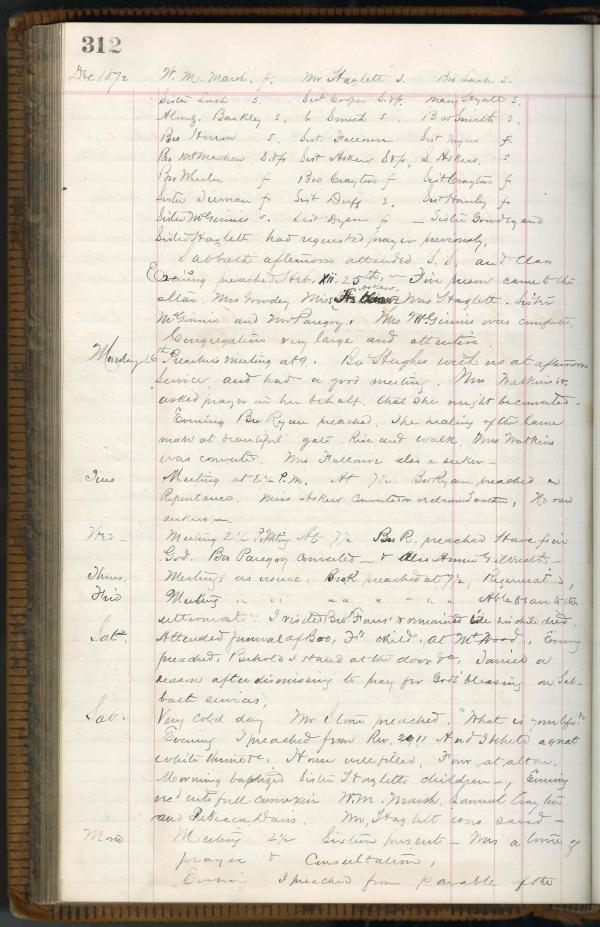 312
Dec 1872 W. M. Marsh. f. Mr Hazlett s. Bro Lash s.
Sister Lash s. Sist Cooper Mary Hyatt s.
Barkley s, Smith s. Bro Smith s,
Bro s. Sist. Fallowse Sist f.
Bro McMachen Sist Askew L Askew. s
Bro Wheeler f Bro Crayton f Sist Crayton f
Sister f Sist Duff s. Sist Hanly f
Sister McGinnis s. Sist Dyson f — Sister Gowdey and
Sister Hazlett had requested prayer previously.
Sabbath afternoon attended S. S. and Class
Evening preached Heb. XII. 25th, — Five person came to the
altar. Mrs Gowdey Miss Askew Mrs Hazlett. Sister
McGinnis and Mr Paregoy. Mrs McGinnis was comforted,
Congregation very large and attentive.
Monday 16th Preachers meeting at 9. Bro Hughes with us at afternoon
service, and had a good meeting. Mrs Watkins
asked prayer in her behalf that she might be
Evening Bro Ryan preached. The healing of the lame
man at beautiful gate. Rise and walk. Mrs Watkins
was converted. Mrs Fallowse also a seeker —
Tues Meeting at 2½ P.M. At 7½ Bro Ryan preached on
Repentance. Miss Askew converted or reclaimed rather, No new
seekers —
Wed — Meeting 2½ P.M. At 7½ Bro R. preached Have faith in
God. Bro Paregoy converted — & also Annie Gilbreath —
Thurs. Meetings as usual. Bro R. preached at 7½,
Frid Meeting " " " " " — " " Able to save to the
uttermost". I visited Bro & remained his child died.
Sat. Attended funeral of Bro, F's child. at Mt Wood, Evening
preached, Behold I stand at the door &c. Tarried a
season after dismissing to pray for God's blessing on Sab-
bath services,
Sab. Very cold day Mr Stone preached. "What is your life?"
Evening I preached from Rev. 20,11 And I beheld a great
white throne &c. House well filled, Four at altar.
Morning baptized Sister Hazletts children —, Evening
rec'd into full connexion W.M. Marsh. Samuel Crayton
and Rebecca Davis. Mr, Hazlett was saved —
Mon Meeting 2½ Sixteen present — Was a time of
prayer & Consultation,
Evening I preached from parable of the